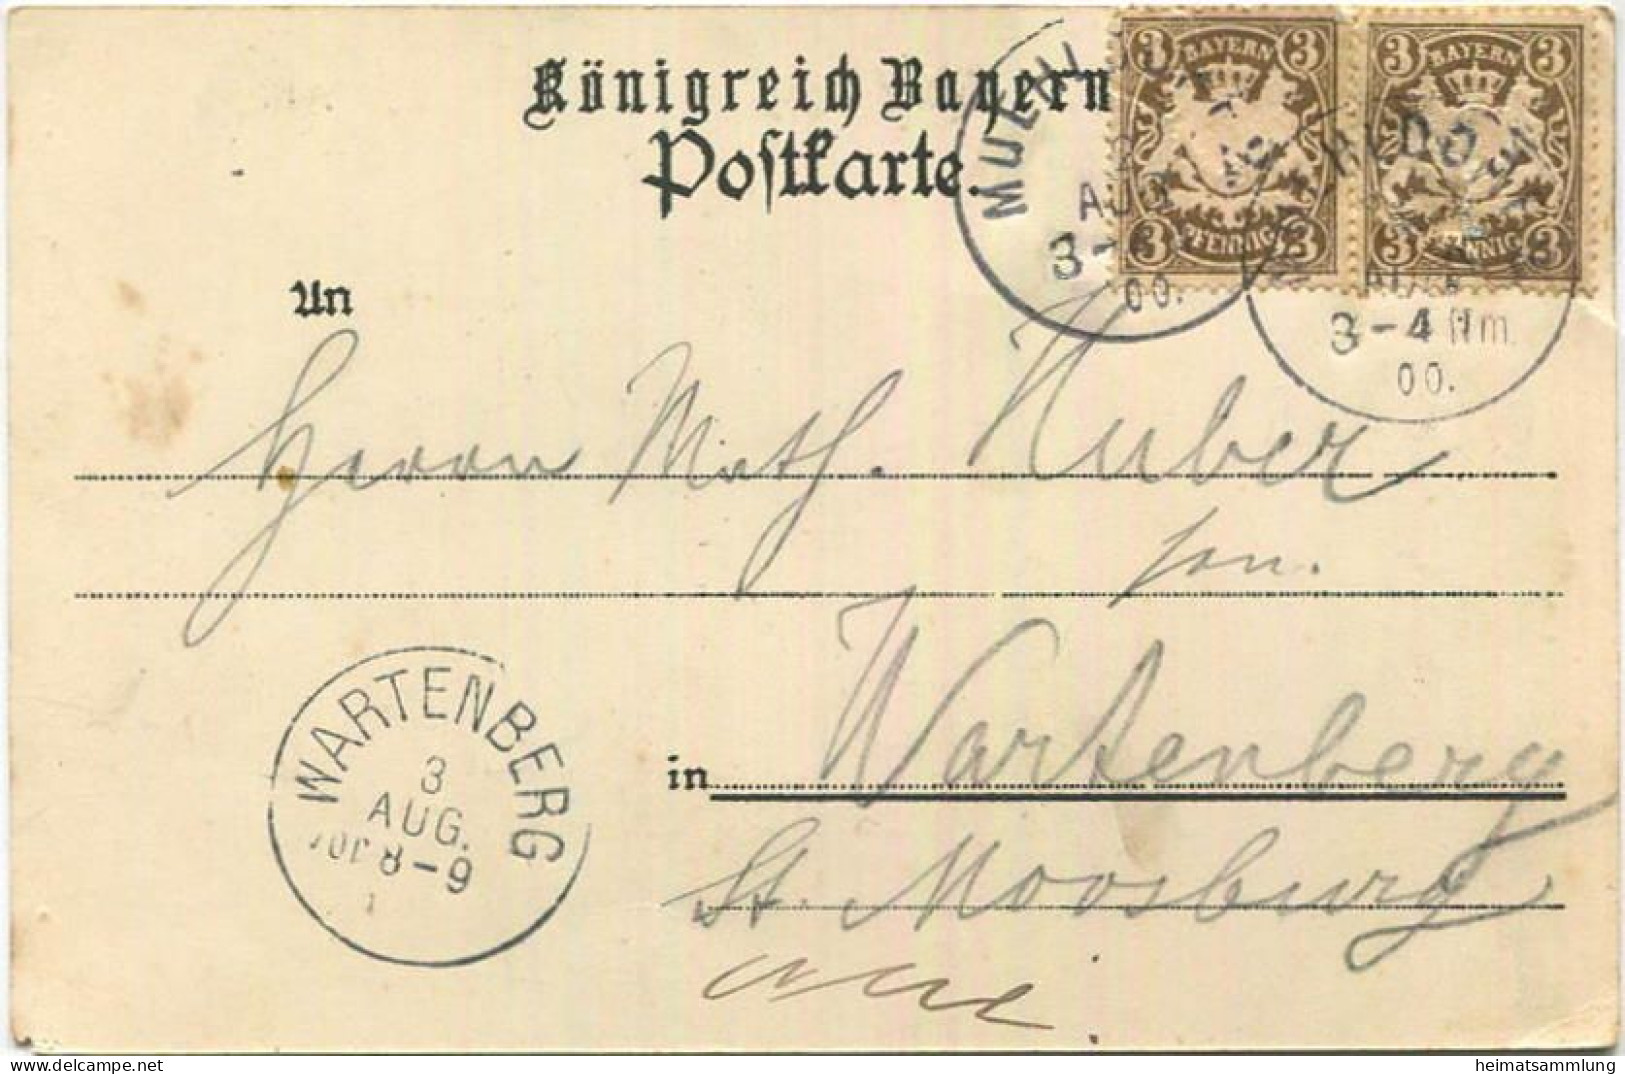 Königreich Bayern
Postkarte.
3 BAYERN 3
3 PFENNIG 3
3 BAYERN 3
3 PFENNIG 3
AUG
3-
00.
3-4 Nm.
00.
An
Herrn Math. Huber
sen.
in Wartenberg
St. Moosburg
WARTENBERG
3
AUG.
Vor 8-9
heimatsammlung